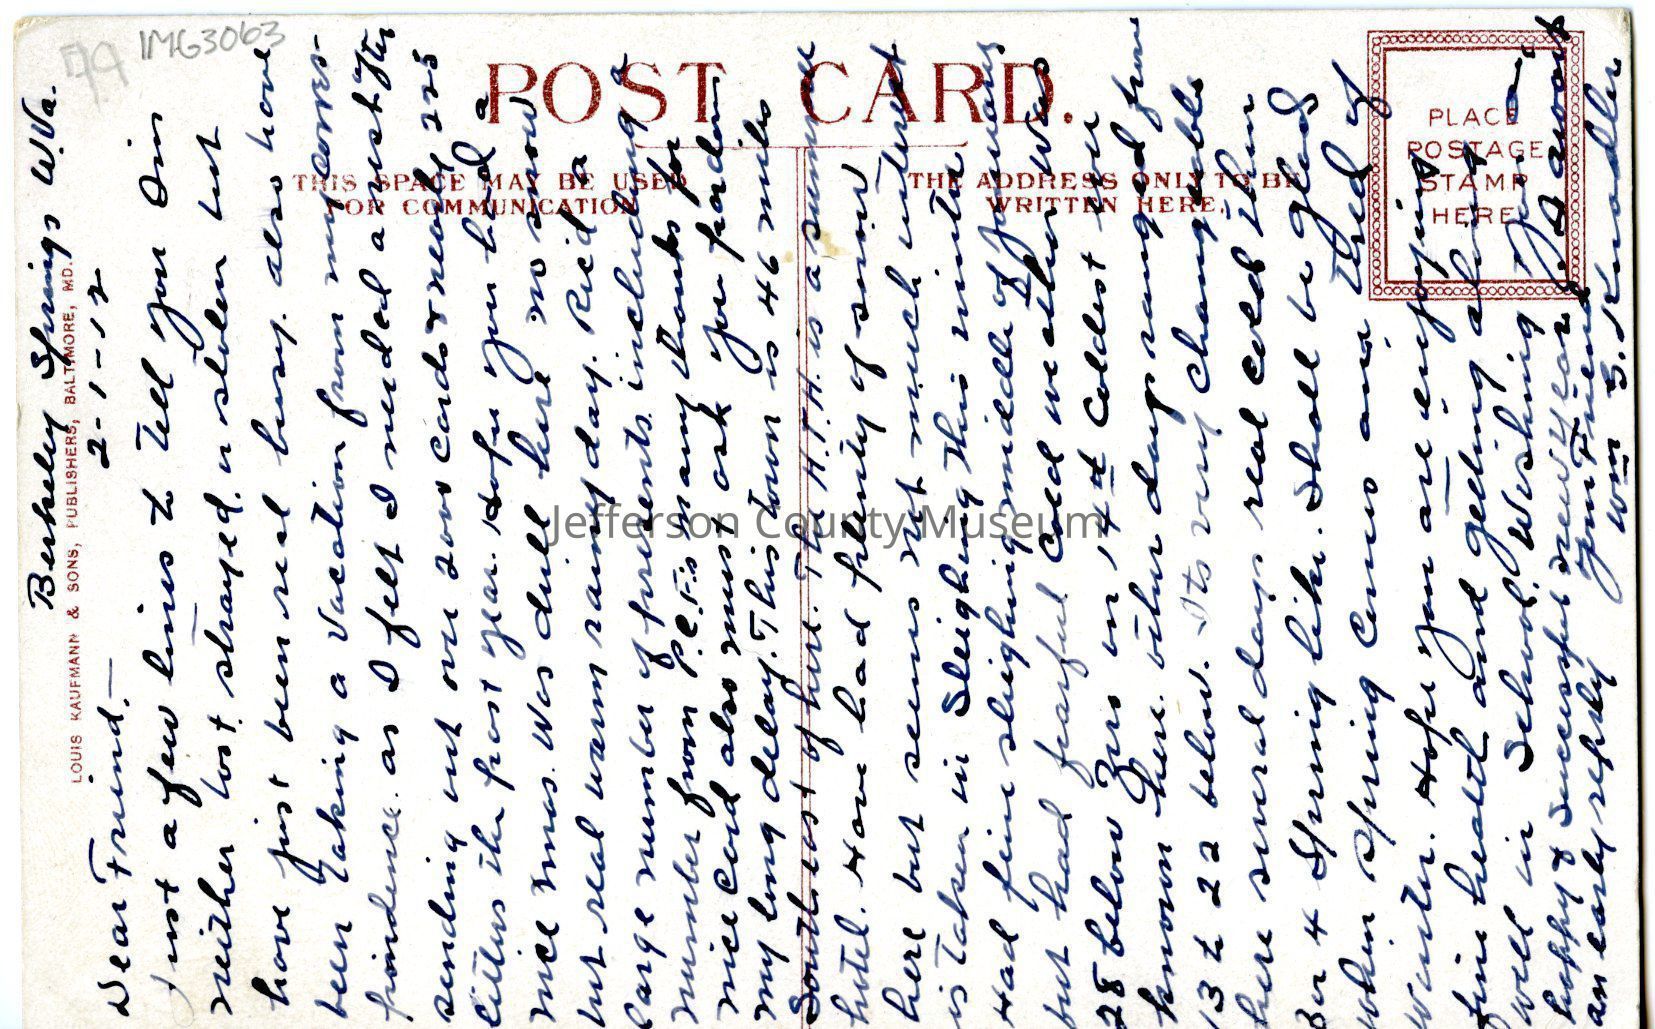 79 IMG3063
POST CARD.
THIS SPACE MAY BE USED
FOR COMMUNICATION
THE ADDRESS ONLY TO BE
WRITTEN HERE.
PLACE
POSTAGE
STAMP
HERE
LOUIS KAUFMANN & SONS, PUBLISHERS, BALTIMORE, MD.
Jefferson County Museum
Berkeley Springs W.Va.
2-1-12
Dear Friend.—
Just a few lines to tell you I'm
neither lost, strayed or stolen but
have just been real busy. also have
been taking a vacation from my corres-
pondence. as I felt I needed a rest after
sending out over 200 cards & nearly 225
letters the past year. Hope you had a
nice Xmas. Was dull here no snow
but real warm rainy day. Rec'd a
large number of presents, including a
number from P.C.F.s many thanks for
nice card also must ask you pardon
my long delay. This town is 46 miles
Southeast of here. The H.F.H. is a summer
hotel. Have had plenty of snow
here but seems not much interest
is taken in sleighing this winter
Had fine sleighing middle of January
but had fearful cold weather was
28 below Zero on 14th coldest ever
known here. other days ranged from
13 to 22 below. Its very changeable
here several days real cold then
3 or 4 Spring like. Shall be glad
when Spring comes am tired of
winter. Hope you are enjoying
fine health and getting along
well in School. Wishing you a
happy & successful new year & await
an early reply Your Friend
Wm S. Knadler